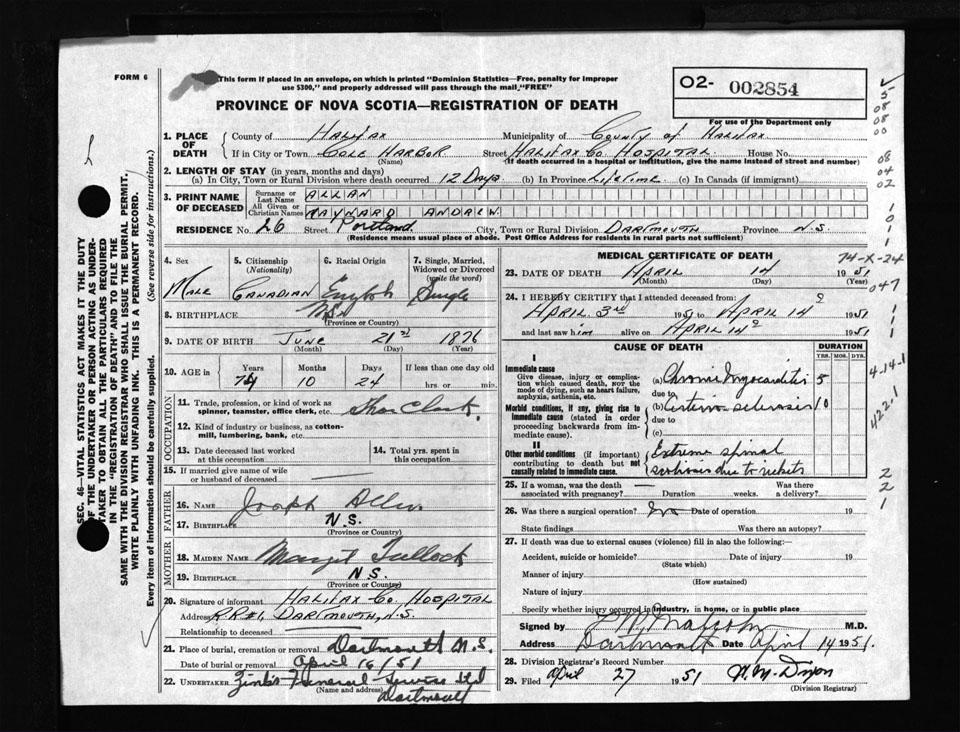 FORM 6
This form if placed in an envelope, on which is printed "Dominion Statistics—Free, penalty for improper
use $300," and properly addressed will pass through the mail "FREE"
O2- 002854
For use of the Department only
PROVINCE OF NOVA SCOTIA—REGISTRATION OF DEATH
1. PLACE OF DEATH County of Halifax Municipality of County of Halifax
If in City or Town Cole Harbor Street Halifax Co. Hospital House No.
(Name) (If death occurred in a hospital or institution, give the name instead of street and number)
2. LENGTH OF STAY (in years, months and days)
(a) In City, Town or Rural Division where death occurred 12 Days (b) In Province Lifetime (c) In Canada (if immigrant)
3. PRINT NAME OF DECEASED Surname or Last Name ALLAN
All Given or Christian Names MAYNARD ANDREW
RESIDENCE No. 26 Street Portland City, Town or Rural Division Dartmouth Province N.S.
(Residence means usual place of abode. Post Office Address for residents in rural parts not sufficient)
4. Sex 5. Citizenship (Nationality) 6. Racial Origin 7. Single, Married, Widowed or Divorced (write the word)
Male Canadian English Single
8. BIRTHPLACE N.S.
(Province or Country)
9. DATE OF BIRTH June 21st 1876
(Month) (Day) (Year)
10. AGE in Years Months Days If less than one day old
74 10 24 hrs. or min.
OCCUPATION
11. Trade, profession or kind of work as spinner, teamster, office clerk, etc. Shoe Clerk.
12. Kind of industry or business, as cotton-mill, lumbering, bank, etc.
13. Date deceased last worked at this occupation 14. Total yrs. spent in this occupation
15. If married give name of wife or husband of deceased
FATHER
16. Name Joseph Allen
17. Birthplace N.S.
(Province or Country)
MOTHER
18. Maiden Name Margit Tullock
19. Birthplace N.S.
(Province or Country)
20. Signature of informant Halifax Co. Hospital
Address R.R#1, Dartmouth, N.S.
Relationship to deceased
21. Place of burial, cremation or removal Dartmouth N.S.
Date of burial or removal April 16/51
22. Undertaker Zink's Funeral Service Ltd
(Name and address) Dartmouth
MEDICAL CERTIFICATE OF DEATH
74-X-24
23. DATE OF DEATH April 14 1951
(Month) (Day) (Year)
24. I HEREBY CERTIFY that I attended deceased from:
April 3rd 1951 to April 14 1951
and last saw him alive on April 14 1951
CAUSE OF DEATH DURATION
YRS. MOS. DYS.
I
Immediate cause
Give disease, injury or complication which caused death, NOT the mode of dying, such as heart failure, asphyxia, asthenia, etc.
(a) Chronic Myocarditis 5
due to
Morbid conditions, if any, giving rise to immediate cause (stated in order proceeding backwards from immediate cause).
(b) Arterio sclerosis 10
due to
(c)
II
Other morbid conditions (if important) contributing to death but not causally related to immediate cause.
Extreme spinal
scoliosis due to rickets
25. If a woman, was the death associated with pregnancy? Duration weeks. Was there a delivery?
26. Was there a surgical operation? No Date of operation 19
State findings Was there an autopsy?
27. If death was due to external causes (violence) fill in also the following:—
Accident, suicide or homicide? Date of injury 19
(State which)
Manner of injury
(How sustained)
Nature of injury
Specify whether injury occurred in industry, in home, or in public place
Signed by M.D.
Address Dartmouth Date April 14 1951.
28. Division Registrar's Record Number
29. Filed April 27 1951
(Division Registrar)
SEC. 46—VITAL STATISTICS ACT MAKES IT THE DUTY
OF THE UNDERTAKER OR PERSON ACTING AS UNDER-
TAKER TO OBTAIN ALL THE PARTICULARS REQUIRED
IN THE "REGISTRATION OF DEATH" AND TO FILE THE
SAME WITH THE DIVISION REGISTRAR WHO SHALL ISSUE THE BURIAL PERMIT.
WRITE PLAINLY WITH UNFADING INK. THIS IS A PERMANENT RECORD.
Every item of information should be carefully supplied. (See reverse side for instructions.)
5
08
08
00
08
04
02
1
0
1
1
047
1
1
1
4-14-1
422.1
2
2
1